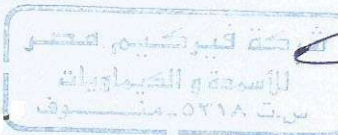 شركة فيركيم مصر
للأسمدة و الكيماويات
س.ت ٥٢١٨ - منـــوف